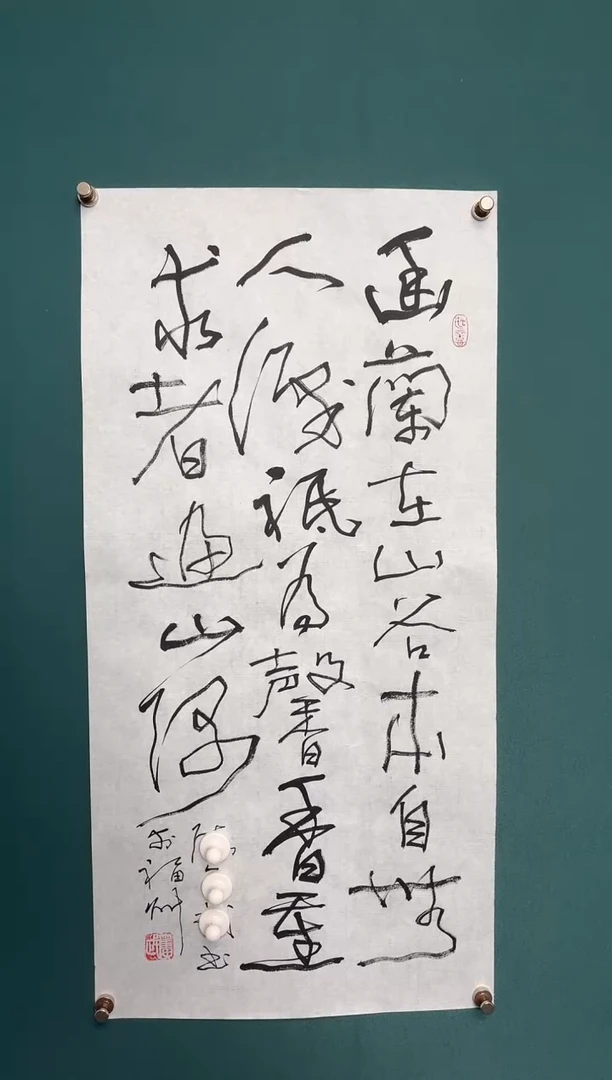 幽蘭在山谷本自無
人識祇為馨香重
求者遍山隅
书
於福州